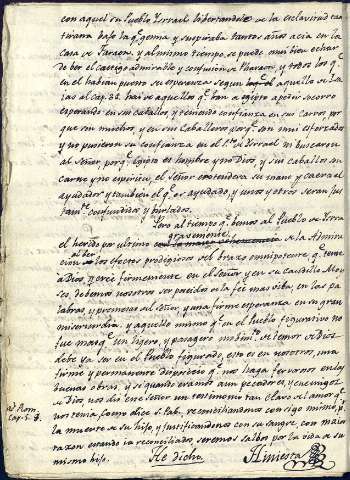 con aquel su Pueblo Ysrael libertandole de la esclavitud
bajo la qe. gemia y suspiraba tantos años acia en la
Casa de Faraon, y al mismo tiempo, se puede mui bien echar
de ber el castigo admirable y confusion de Pharaon, y todos los qe.
en el habian puesto su esperanza segun aquello de
al cap. 31. hai de aquellos qe. ban a egipto a pedir socorro
esperando en sus caballos y teniendo confianza en sus carros por
que son muchos, y en sus Caballeros porqe. son mui esforzados
y no pusieron su confianza en el Sto. de Ysrael ni buscaron
al Señor porqe. Egipto es hombre y no Dios, y sus caballos son
carne y no espiritu, el Señor estendera su mano y caera el
ayudador y tambien el qe. es ayudado, y unos y otros seran
confundidos y burlados.
Pero al tiempo qe. bemos al Pueblo de
gravemente
el herido por ultimo de la
al ber
los efectos prodigiosos del brazo omnipotente qe.
a Dios, y creer firmemente en el Señor y en su Caudillo
debemos nosotros ser poseidos de la fe mas viba, en las pa
labras y promesas del Señor, y una firme esperanza en su gran
misericordia, y aquello mismo qe. en el Pueblo figurativo no
fue mas qe. un ligero, y pasagero de temor de Dios
debe ya ser en el Pueblo figurado, esto es en nosotros, una
firme y permanente disposicion qe. nos haga fervorosos en las
buenas obras, y si quando eramos aun pecadores, y enemigos
nos dio ese Señor un testimonio tan claro del amor qe.
nos tenia como dice S. Pablo, reconciliandonos con sigo mismo pr.
ad Rom.
Cap. 5.
la muerte de su hijo, y justificandonos con su sangre, con maior
razon estando ia reconciliados, seremos salbos por la vida de su
mismo hijo. He dicho. Hiniesta